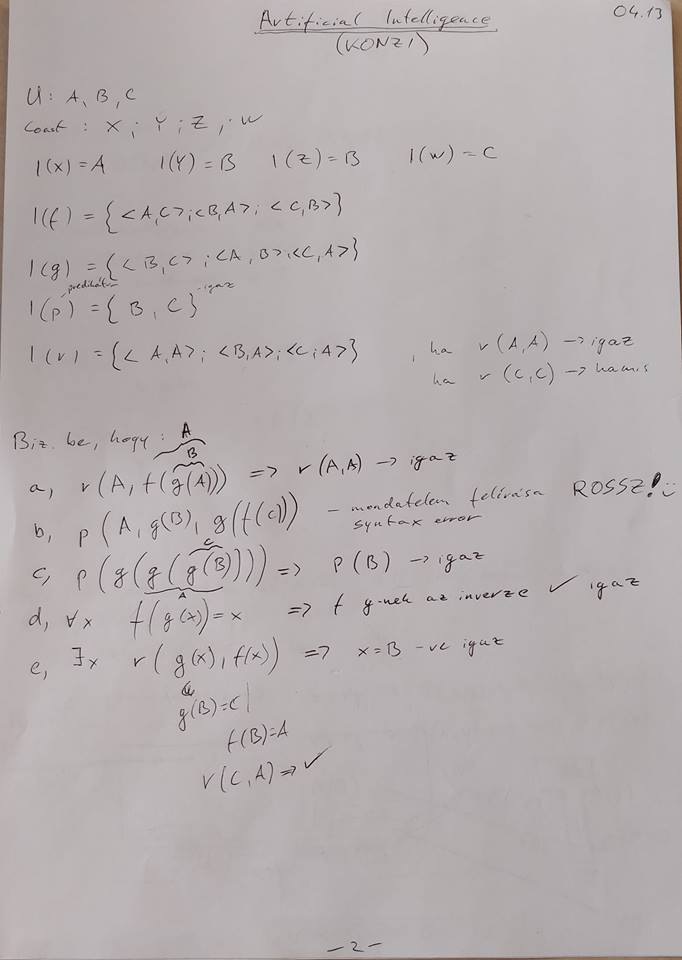 Artificial Intelligence
04.13
(KONZI)
U: A, B, C
Const : X ; Y ; Z ; W
I(x) = A I(Y) = B I(Z) = B I(w) = C
I(f) = {<A,C>;<B,A>; <C,B>}
I(g) = {<B,C> ;<A,B>;<C,A>}
I(p) = {B, C} - igaz
I(r) = {<A,A>; <B,A>;<C;A>} , ha r(A,A) -> igaz
ha r (C,C) -> hamis
Biz. be, hogy : A
B
a, r(A, f(g(A))) => r(A,A) -> igaz
b, p(A, g(B), g(f(c))) - mondatelem felírása ROSSZ!
syntax error
C
c, p(g(g(g(B)))) => p(B) -> igaz
A
d, ∀x f(g(x)) = x => f g-nek az inverze ✓ igaz
e, ∃x r(g(x), f(x)) => x=B -re igaz
g(B)=C
f(B)=A
r(C,A) => ✓
-2-